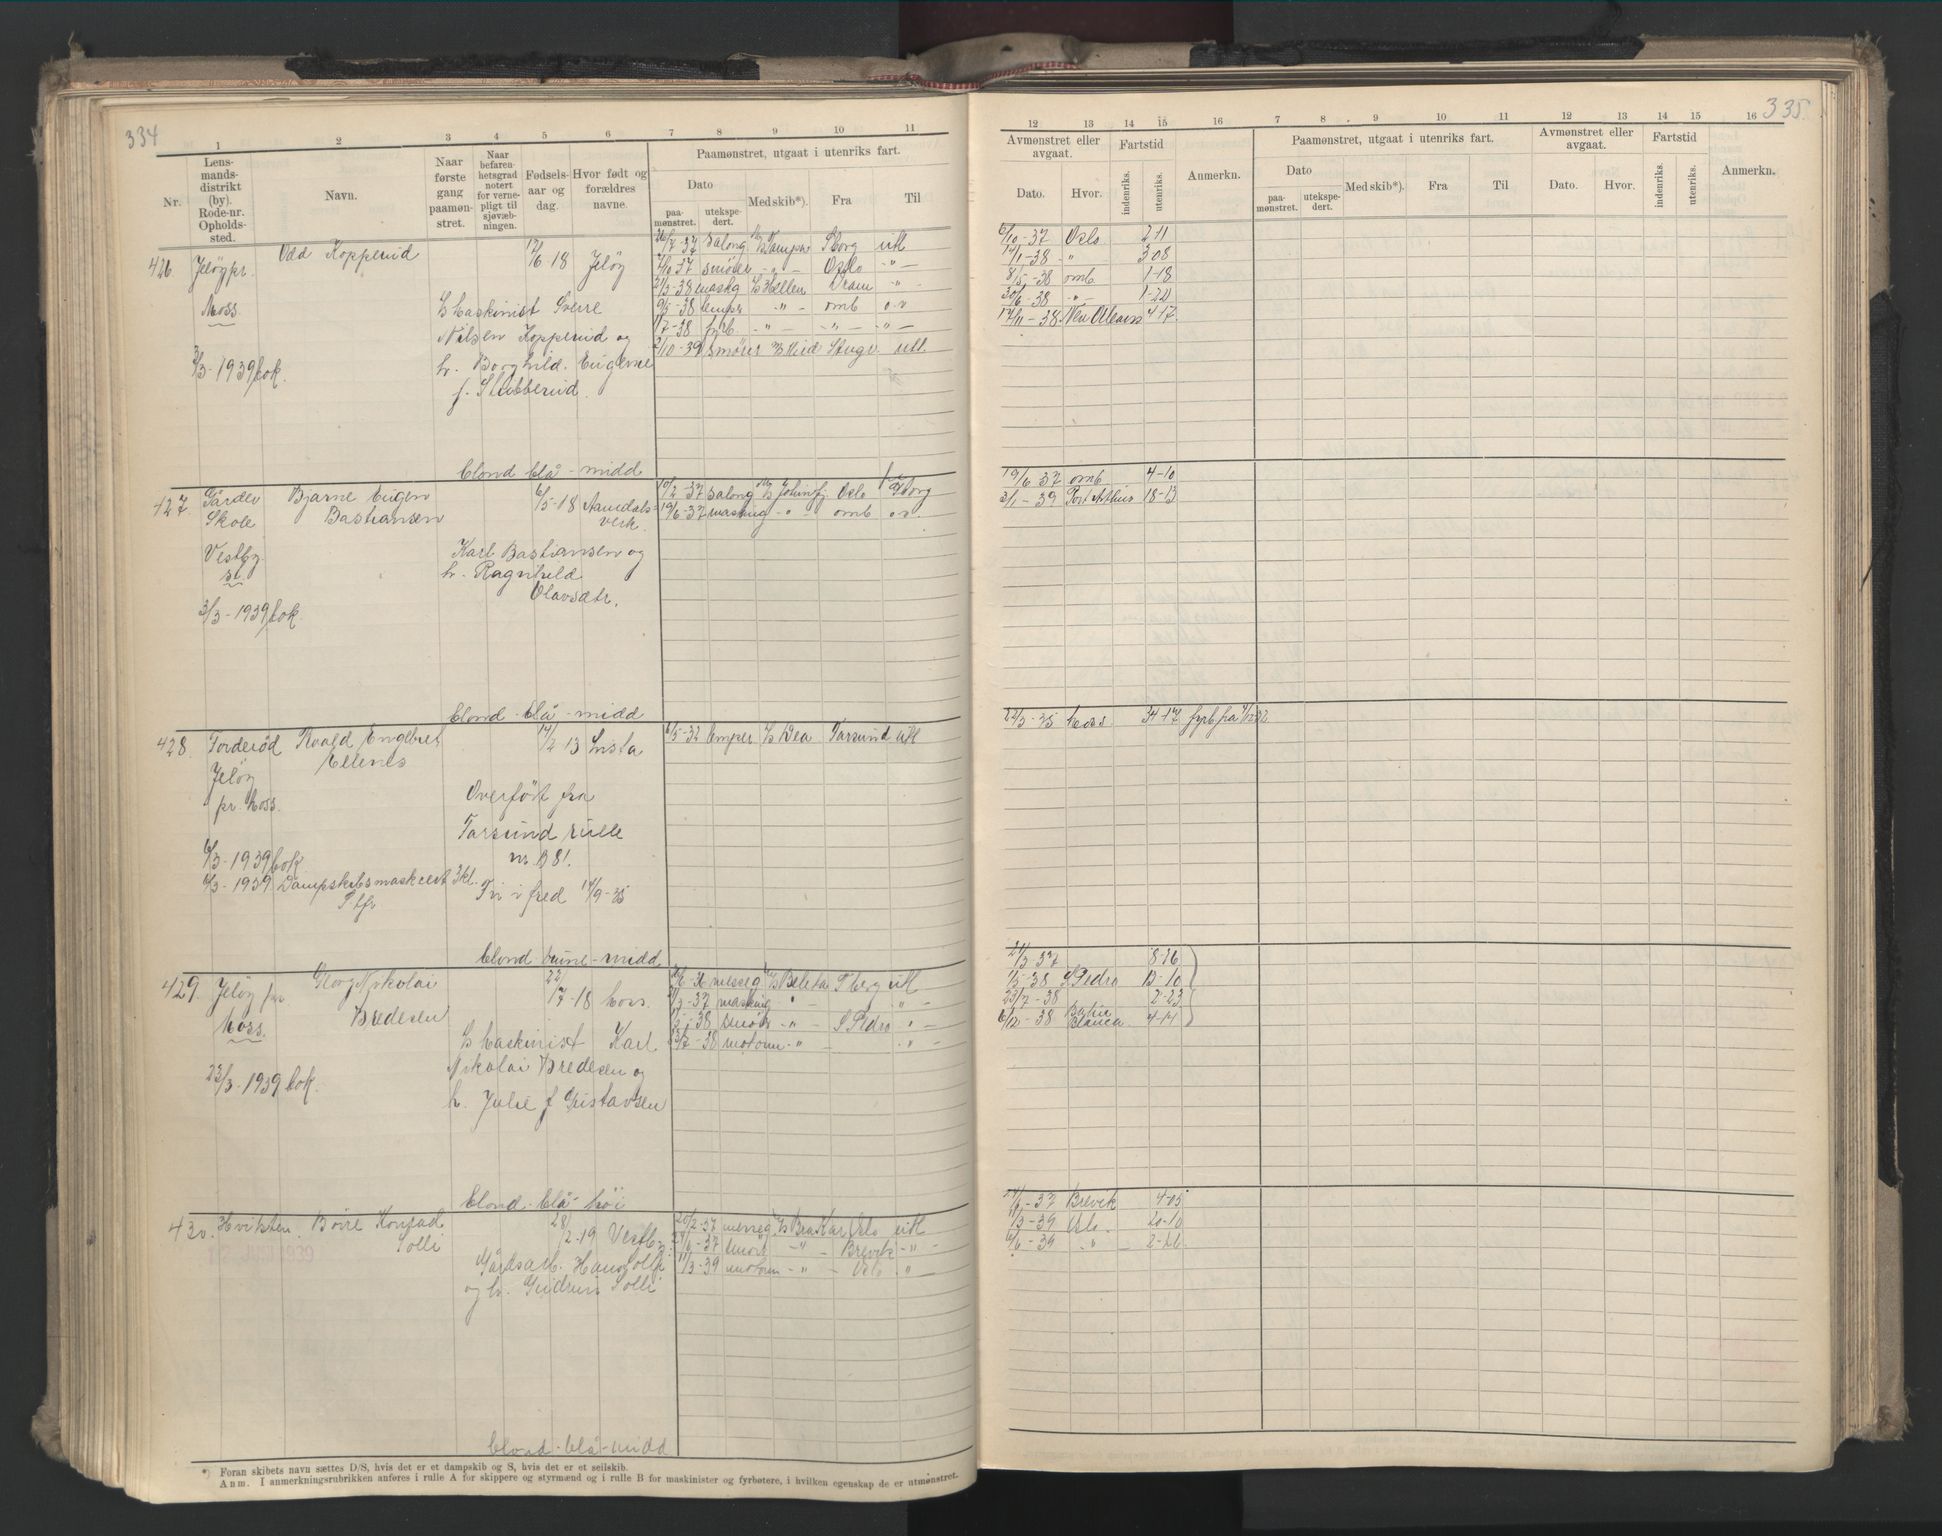 334
1 2 3 4 5 6 7 8 9 10 11
Nr.
Lens-
mands-
distrikt
(by).
Rode-nr.
Opholds-
sted.
Navn.
Naar
første
gang
paamøn-
stret.
Naar
befaren-
hetsgrad
notert
for verne-
pligt til
sjøvæb-
ningen.
Fødsels-
aar og
dag.
Hvor født og
forældres
navne.
Paamønstret, utgaat i utenriks fart.
Dato
paa-
mønstret.
utekspe-
dert.
Med skib*).
Fra
Til
426 Jeløy pr.
Moss
3/3-1939 bok.
Odd Kopperud
17/6-18 Jeløy
Maskinist Sverre
Nilsen Kopperud og
h. Borghild Eugenie
f. Stubberud
blond blå - midd
26/7-37 salong Sborg utl
7/10 37 smører - " - Oslo - " -
21/3-38 maskg Hellen Dram - " -
9/5-38 lemper - " - omb o.r
1/7-38 fyrb. - " - - " - - " -
2/10-39 smører Stugr. utl.
427. Gårder
Skole
Vestby
st
3/3-1939 bok.
Bjarne Eugen
Bastiansen
6/5-18 Aamdals-
verk.
Karl Bastiansen og
h. Ragnhild
Olavsdtr.
blond - blå - midd
10/2-37 salong Oslo
19/6-37 maskng - " - omb o.r.
428. Torderød
Jeløy
pr. Moss.
6/3-1939 bok
6/3-1939. Dampskibsmaskcert 3kl.
Roald Engebret
Ellenes
14/2 13 Lista
Overført fra
Farsund rulle
nr. B 81.
Fri i fred 14/9-35
blond brune - midd
6/5-32 lemper Dea Farsund utl
429. Jeløy pr.
Moss.
23/3-1939 bok.
Georg Nikolai
Bredesen
22/7-18 Moss.
Maskinist Karl
Nikolai Bredesen og
h. Julie f Gustavsen
blond - blå - høi
messeg Tberg utl
21/3-37 maskng " - " -
1/5-38 smør - " - S Pedro " -
23/7-38 motorm - " - " -
430. Hvitsten.
12 JUNI 1939
Børe Konrad
Solli
28/2-19 Vestby
Gårdsarb. Hans Solli
og h. Gudrun Solli
blond - blå - midd
20/2-37 messeg Brakar Oslo utl
24/6-37 smør - " - Brevik - " -
11/3-39 motorm - " - Oslo "
*) Foran skibets navn sættes D/S, hvis det er et dampskib og S, hvis det er et seilskib.
Anm. I anmerkningsrubrikken anføres i rulle A for skippere og styrmænd og i rulle B for maskinister og fyrbøtere, i hvilken egenskap de er utmønstret.
335.
12 13 14 15 16 7 8 9 10 11 12 13 14 15 16
Avmønstret eller
avgaat.
Dato.
Hvor.
Fartstid
indenriks.
utenriks.
Anmerkn.
Paamønstret, utgaat i utenriks fart.
Dato
paa-
mønstret.
utekspe-
dert.
Med skib*).
Fra
Til
Avmønstret eller
avgaat.
Dato.
Hvor.
Fartstid
indenriks.
utenriks.
Anmerkn.
6/10-37 Oslo 2-11
14/1-38 " 3 08
8/5-38 omb 1-18
30/6-38 - " - 1-20
17/11-38 New Orleans 4 17
19/6 37 omb 4-10
3/1-39 Port Arthur 18-13
22/3-35 Moss. 34-17
21/3 37 8-26
1/5-38 S Pedro 13-10
23/7-38 2-23
6/12-38 Bahia
Blanca 4-14
24/6-37 Brevik 4-05
11/3-39 Oslo 20-10
6/6-39 " 2-26